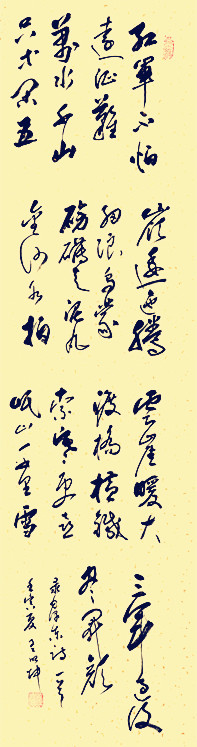 紅軍不怕
遠征難
萬水千山
只等閑五
嶺逶迤騰
細浪烏蒙
磅礴走泥丸
金沙水拍
雲崖暖大
渡橋橫鐵
索寒更喜
岷山千里雪
三軍過後
盡開顏
錄毛澤東詩一首
夏